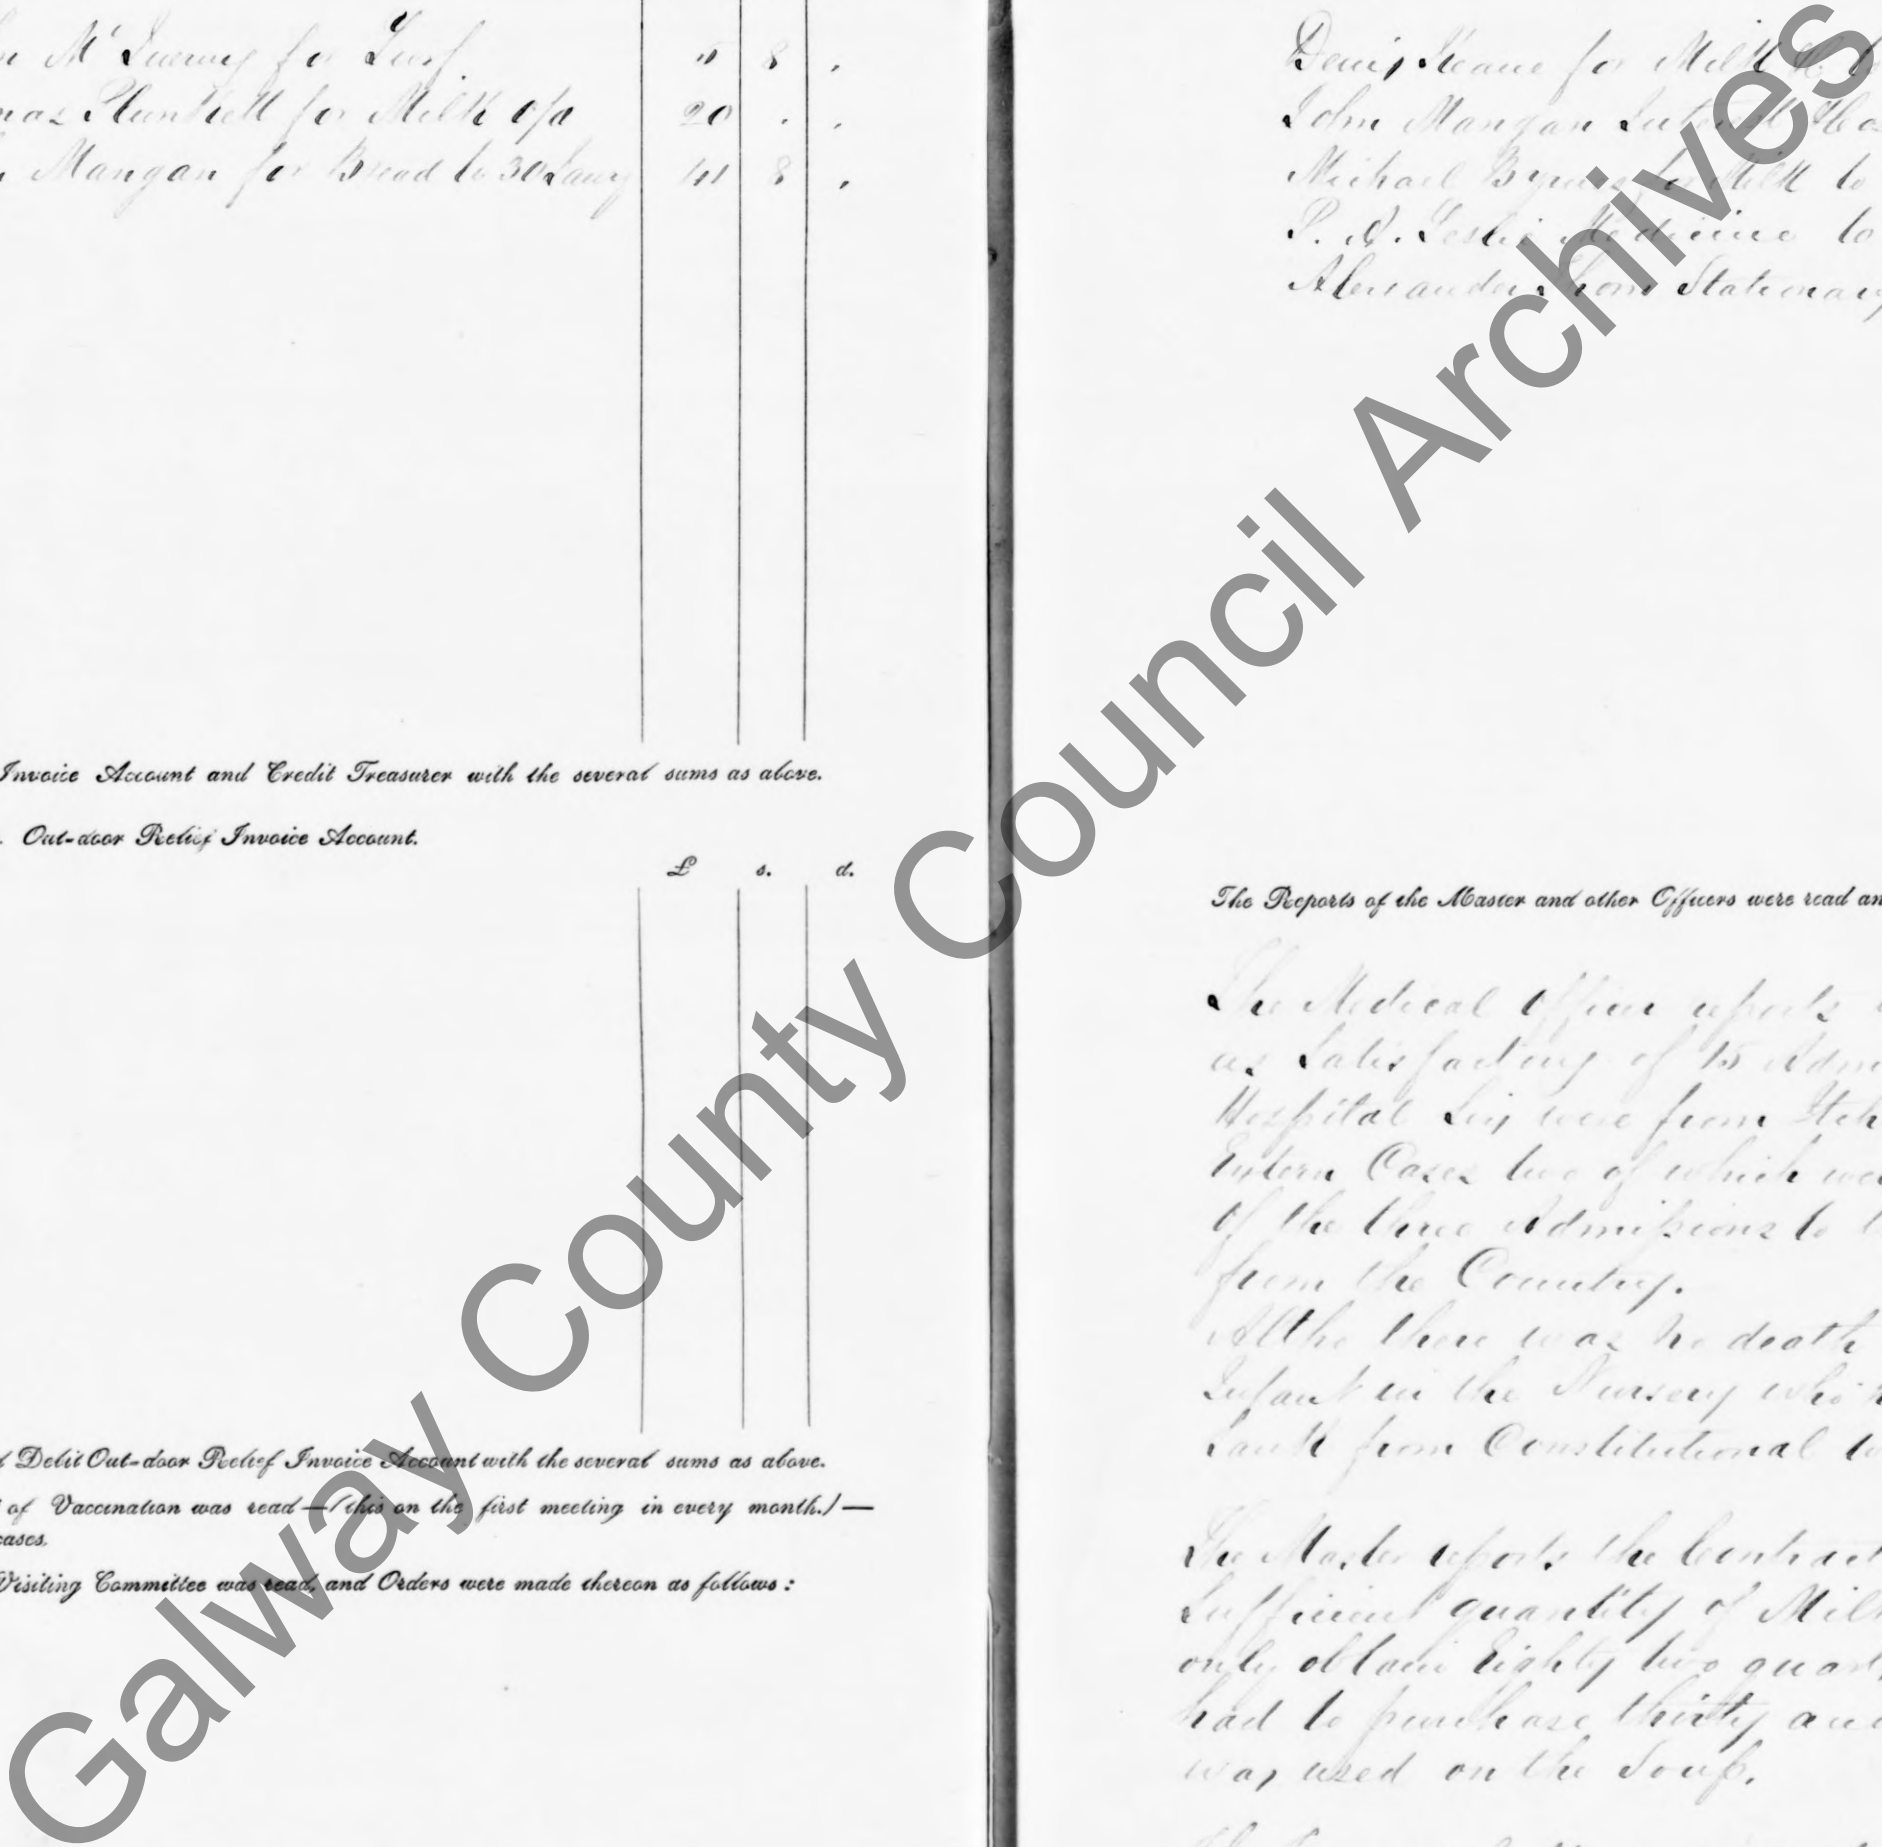 Mc Inerney for Turf " 8 .
Plunkett for Milk o/a 20 . .
Mangan for Bread to 30 Jany 41 8 .
Invoice Account and Credit Treasurer with the several sums as above.
Out-door Relief Invoice Account.
£ s. d.
Debit Out-door Relief Invoice Account with the several sums as above.
of Vaccination was read—(this on the first meeting in every month.)—
cases.
Visiting Committee was read, and Orders were made thereon as follows:
Denis Keane for Milk
John Mangan
Michael Byrnes for Milk to
P. A. Leslie Medicine to
Alexander Thom Stationary
The Reports of the Master and other Officers were read an
The Medical Officer reports
as Satisfactory of 15 Adm
Hospital Six were from Itch
Extern Cases two of which we
Of the three Admissions to
from the Country.
Altho there was no death
Infant in the Nursery who
Sank from Constitutional
The Master reports the Contract
Sufficient quantity of Milk
only obtain Eighty two quart
had to purchase thirty and
was used on the Soup.
Galway County Council Archives